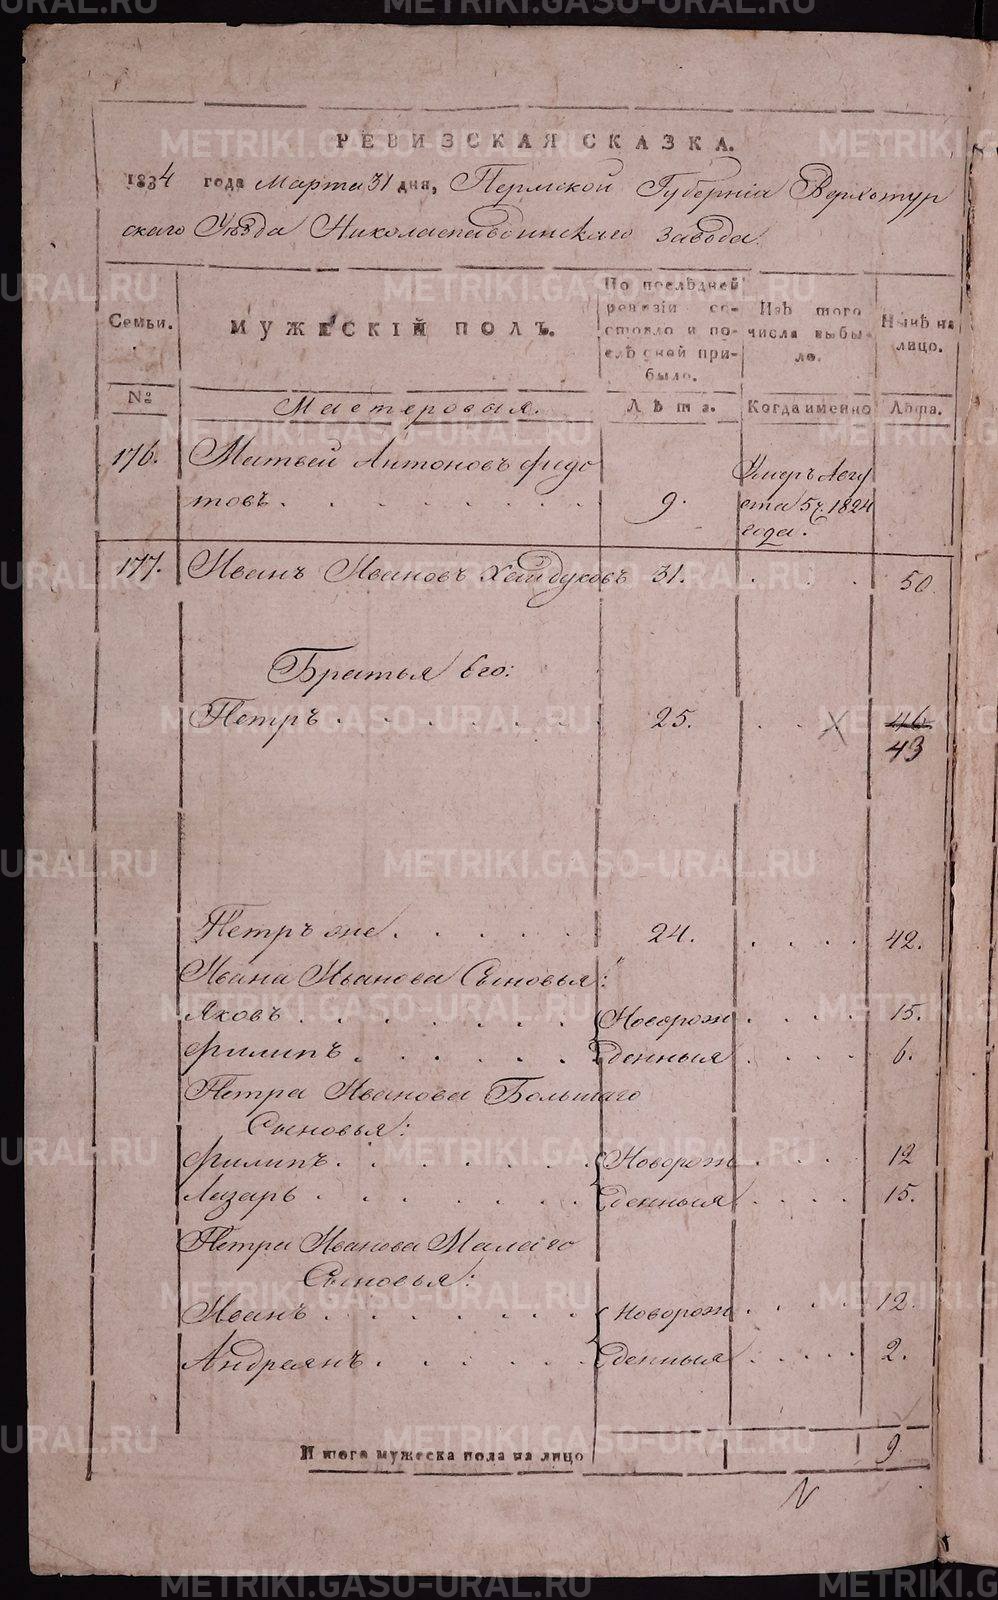 РЕВИЗСКАЯ СКАЗКА.
1834 года Марта 31 дня, Пермской Губерніи Верхотур
скаго Уѣзда Николаепавдинскаго завода.
Семьи. МУЖЕСКІЙ ПОЛЪ. По послѣдней ревизіи состояло и послѣ оной прибыло. Изъ того числа выбыло. Нынѣ на лицо.
№ Мастеровыя. Лѣта. Когда именно Лѣта.
176. Матвей Антоновъ Федо Умеръ Авгу
товъ . . . . . . . . 9. ста 5 ч. 1824
года.
177. Иванъ Ивановъ Хайдуковъ 31. . . . 50
Братья его:
Петръ . . . . . . . 25. . . X 46
43
Петръ же . . . . . 24. . . . . 42.
Ивана Иванова Сыновья:
Яковъ . . . . . . . Новорож . . . . 15.
Филипъ . . . . . . денныя . . . . 6.
Петра Иванова Большаго
Сыновья:
Филипъ . . . . . . . Новорож . . . . 12
Лазарь . . . . . . денныя . . . . 15.
Петра Иванова Малаго
Сыновья:
Иванъ . . . . . . . Новорож . . . . 12.
Андреянъ . . . . . денныя . . . . . 2.
Итого мужеска пола на лицо 9.
METRIKI.GASO-URAL.RU